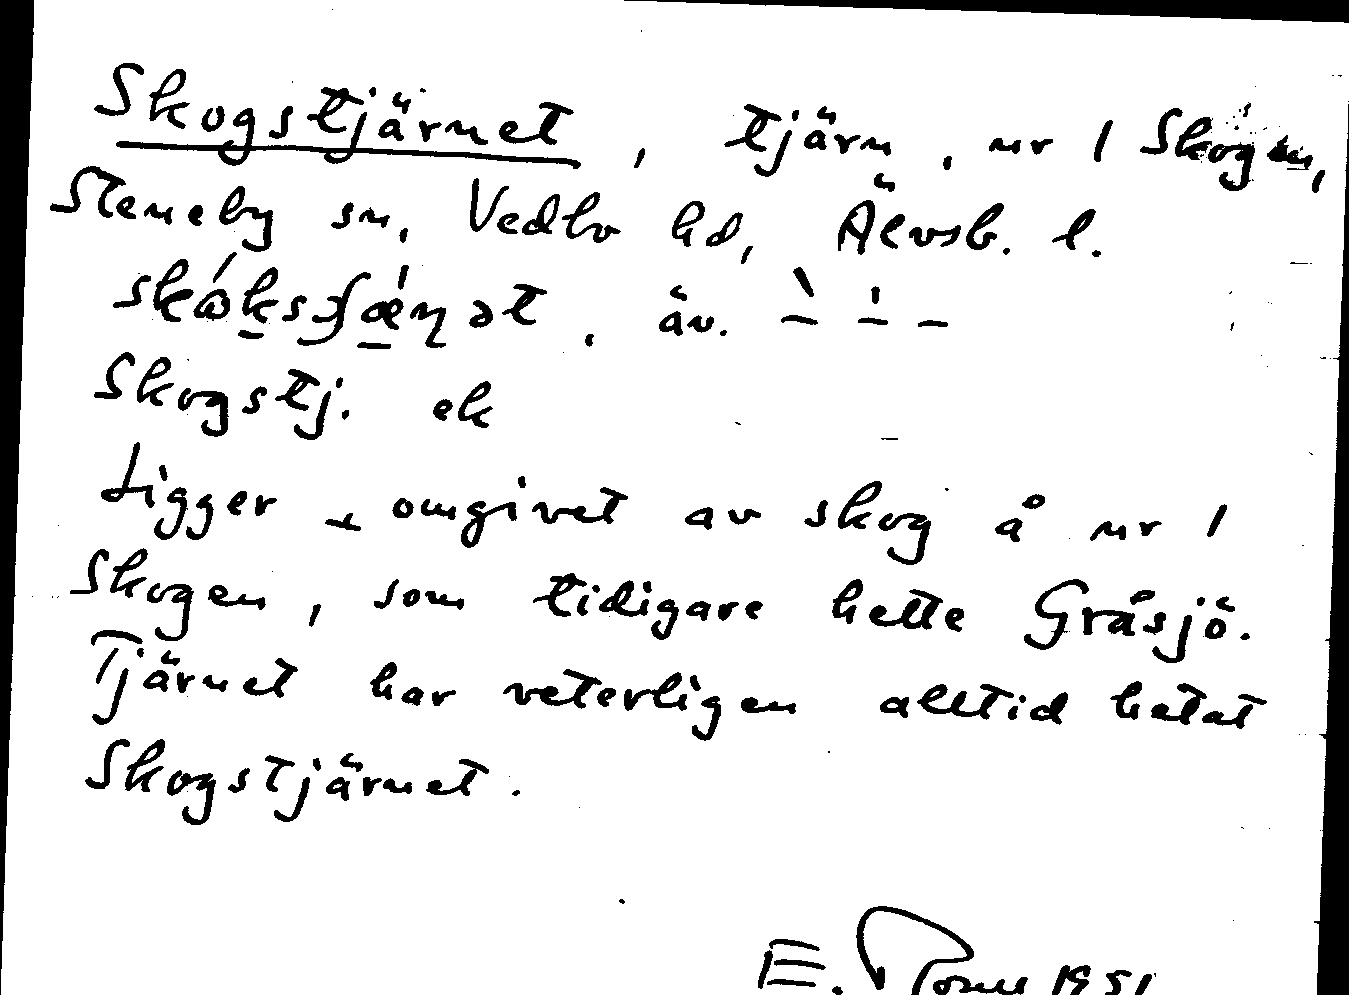 Skogstjärnet, tjärn, nr 1 Skogen,
Steneby sn, Vedbo hd, Älvsb. l.
äv.
Skogstj. ek
Ligger omgivet av skog å nr 1
Skogen, som tidigare hette Gråsjö.
Tjärnet har veterligen alltid hetat
Skogstjärnet.
E. 1951